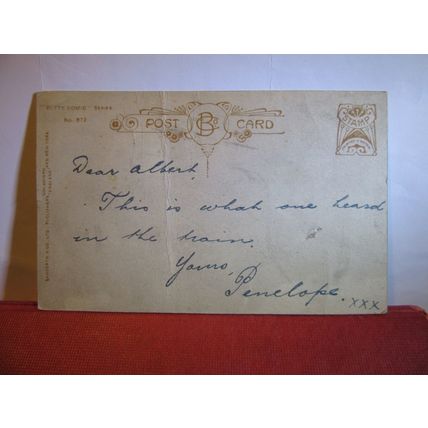 "WITTY COMIC" SERIES.
No. 873
POST CARD
B
STAMP
BAMFORTH & CO. LTD., PUBLISHERS, HOLMFIRTH, ENGLAND AND NEW YORK.
Dear Albert,
This is what one heard
in the train.
Yours,
Penelope.
xxx